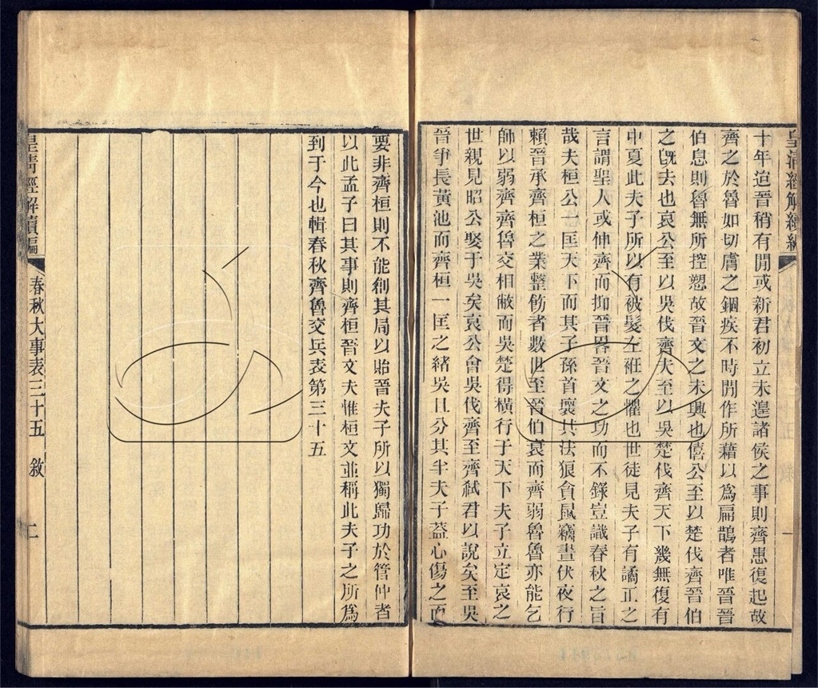 皇清經解續編
十年這晉稍有閒或新君初立未遑諸侯之事則齊患復起故
齊之於魯如切膚之錮疾不時閒作所藉以為扁鵲者唯晉晉
伯息則魯無所控愬故晉文之未興也僖公至以楚伐齊晉伯
之旣去也哀公至以吳伐齊夫至以吳楚伐齊天下幾無復有
中夏此夫子所以有被髮左衽之懼也世徒見夫子有譎正之
言謂聖人或伸齊而抑晉畧晉文之功而不錄豈識春秋之旨
哉夫桓公一匡天下而其子孫首壞其法狼貪鼠竊晝伏夜行
賴晉承齊桓之業整飭者數世至晉伯衰而齊弱魯魯亦能乞
師以弱齊齊魯交相敝而吳楚得橫行于天下夫子立定哀之
世親見昭公娶于吳矣哀公會吳伐齊至齊弒君以說矣至吳
晉爭長黃池而齊桓一匡之緒吳且分其半夫子葢心傷之而
要非齊桓則不能創其局以貽晉夫子所以獨歸功於管仲者
以此孟子曰其事則齊桓晉文夫惟桓文並稱此夫子之所為
到于今也輯春秋齊魯交兵表第三十五
皇清經解續編
春秋大事表三十五 敘 二